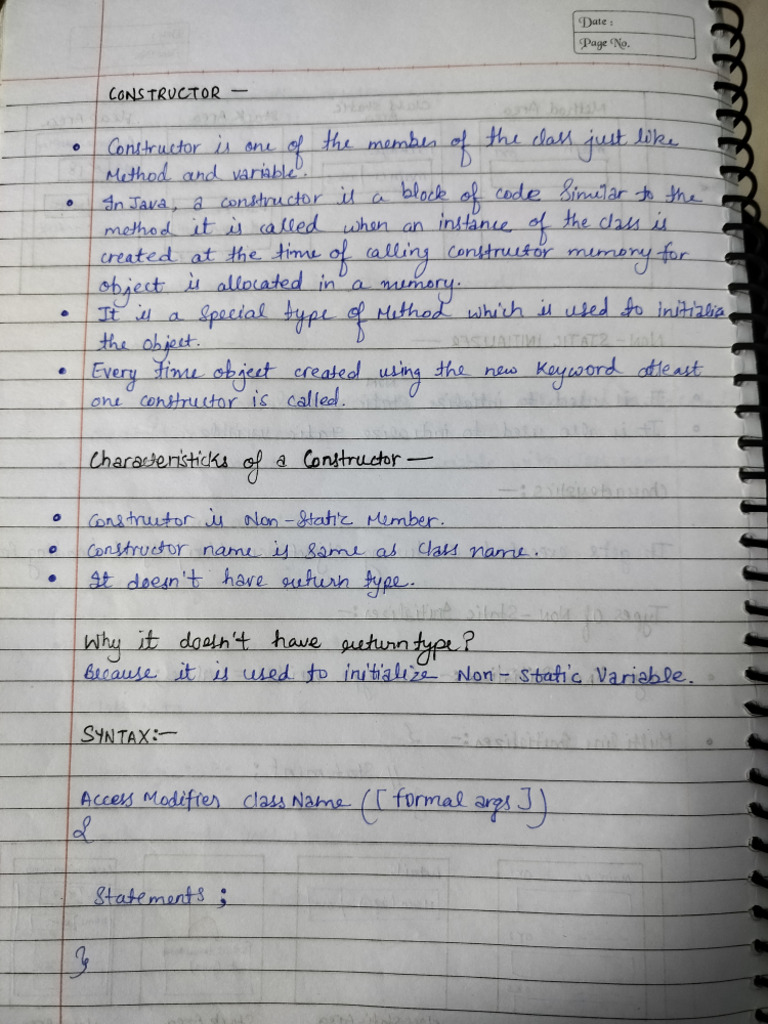 Date :
Page No.
CONSTRUCTOR —
• Constructor is one of the member of the class just like
Method and variable.
• In Java, a constructor is a block of code similar to the
method it is called when an instance of the class is
created at the time of calling constructor memory for
object is allocated in a memory.
• It is a special type of Method which is used to initialize
the object.
• Every time object created using the new keyword atleast
one constructor is called.
Characteristicks of a Constructor —
• Constructor is Non-Static Member.
• Constructor name is same as class name.
• It doesn't have return type.
Why it doesn't have return type?
Because it is used to initialize Non-Static Variable.
SYNTAX:—
Access Modifier className ([formal args])
{
Statements ;
}